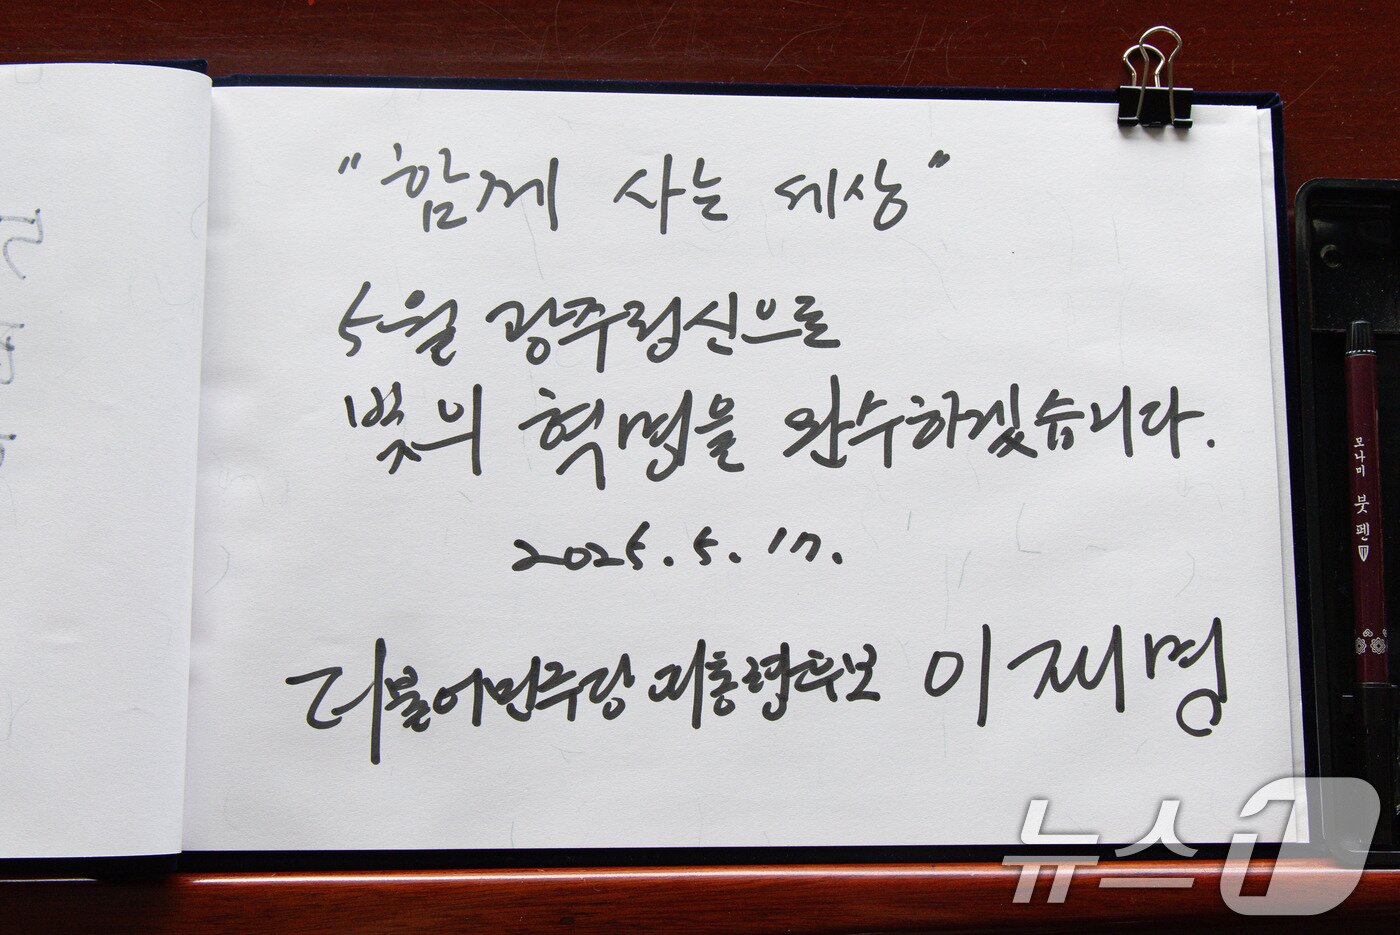 "함께 사는 세상"
5월 광주정신으로
빛의 혁명을 완수하겠습니다.
2025. 5. 17.
더불어민주당 대통령후보 이재명
모나미 붓펜
뉴스1